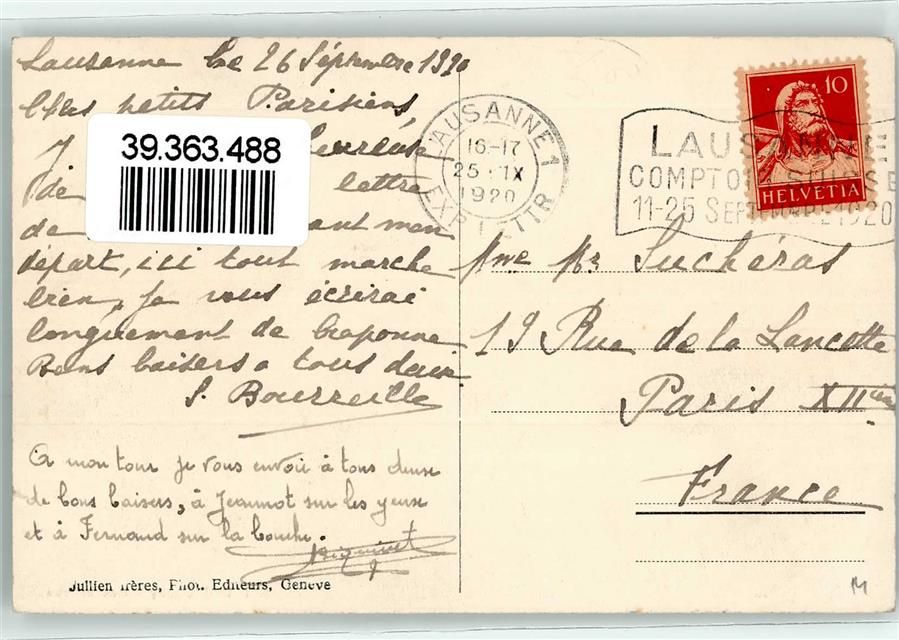 Lausanne le 26 Séptembre 1920
Chers petits Parisiens
39.363.488
J heureuse
de lettre
de ant mon
départ, ici tout marche
bien, Je vous écrirai
longuement de Craponne
Bons baisers a tous deux
S. Bourreille
A mon tour je vous envoi à tous deux
de bons baisers, à Jeannot sur les yeux
et à Fernand sur la bouche.
Jullien frères, Phot. Editeurs, Genève
LAUSANNE 1
16-17
25.IX
1920
EXP. LETTR
LAUSANNE
COMPTOIR SUISSE
11-25 SEPTEMBRE 1920
10
HELVETIA
Mme Mr Suchéras
19 Rue de la Lancette
Paris XIIem
France
M